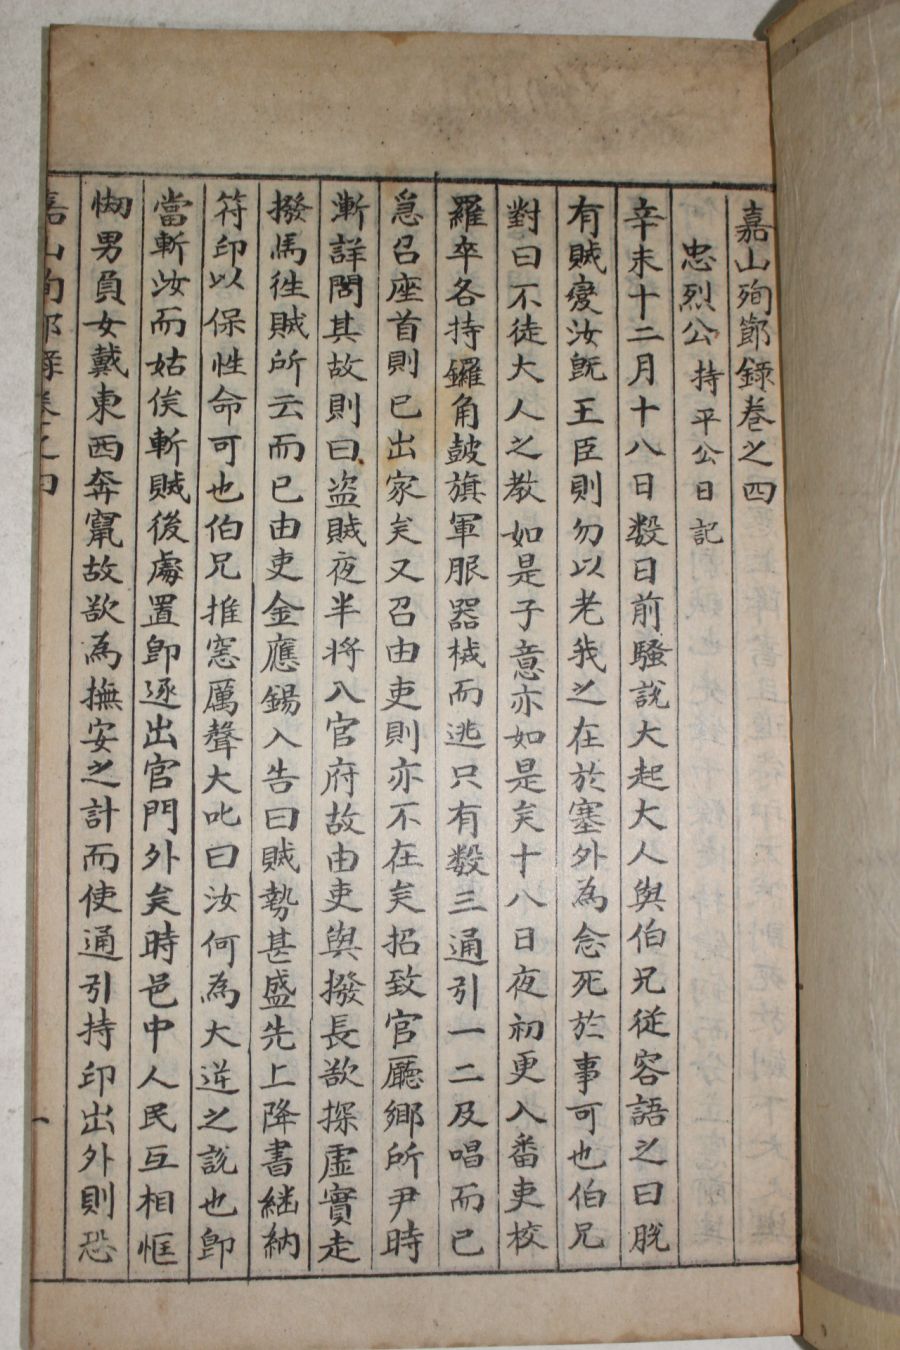 嘉山殉節錄卷之四
忠烈公持平公日記
辛未十二月十八日数日前騷說大起大人與伯兄從容語之曰脫
有賊變汝旣王臣則勿以老我之在於塞外為念死於事可也伯兄
對曰不徒大人之教如是子意亦如是矣十八日夜初更入番吏校
羅卒各持鑼角鼓旗軍服器械而逃只有数三通引一二及唱而已
急召座首則已出家矣又召由吏則亦不在矣招致官廳鄉所尹時
漸詳問其故則曰盗賊夜半將入官府故由吏與撥長欲探虛實走
撥馬徃賊所云而已由吏金應錫入告曰賊勢甚盛先上降書継納
符印以保性命可也伯兄推窓厲聲大叱曰汝何為大逆之說也卽
當斬汝而姑俟斬賊後處置卽逐出官門外矣時邑中人民互相恇
㤼男負女戴東西奔竄故欲為撫安之計而使通引持印出外則恐
嘉山殉節錄卷之四
一